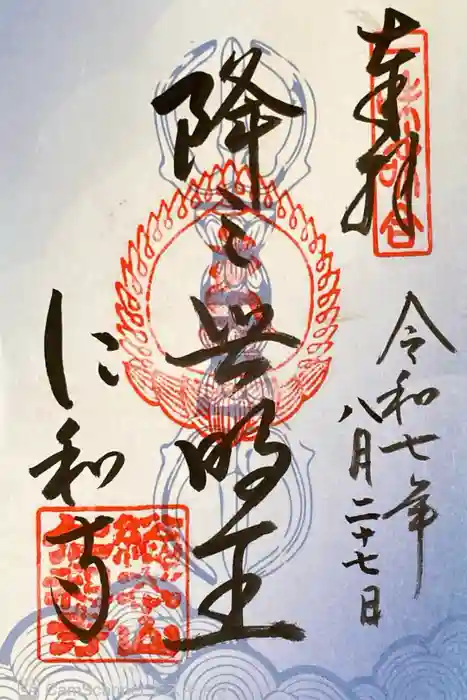 奉拝
令和七年
八月二十七日
降三世明王
仁和寺
CamScanner